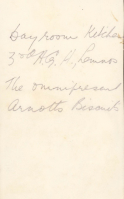 Dayroom Kitchen
3rd A.G.H. Lemnos
The omnipresent
Arnotts Biscuit